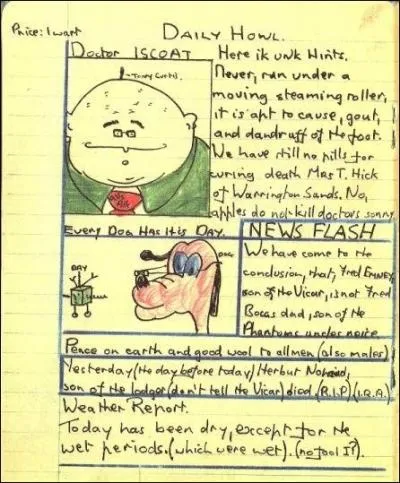 Price: 1 wart
DAILY HOWL.
Doctor ISCOAT
Tony Curtis.
Here ik unk Hints.
Never, run under a
moving steaming roller,
it is apt to cause, gout,
and dandruff of the foot.
We have still no pills for
curing death Mrs T. Hick
of Warrington Sands. No,
apples do not kill doctors sonny
EVERY DOG HAS IT IS DAY.
DAY
DOG
NEWS FLASH
We have come to the
conclusion, that, Fred
son of the Vicar, is not Fred
Bocas dad, son of the
Phantoms uncles neice
Peace on earth and good wool to all men (also males)
Yesterday (the day before today) Herbut
son of the lodger (don't tell the Vicar) died (R.I.P) (I.R.A.)
Weather Report.
Today has been dry, except for the
wet periods. (which were wet). (no fool I?).